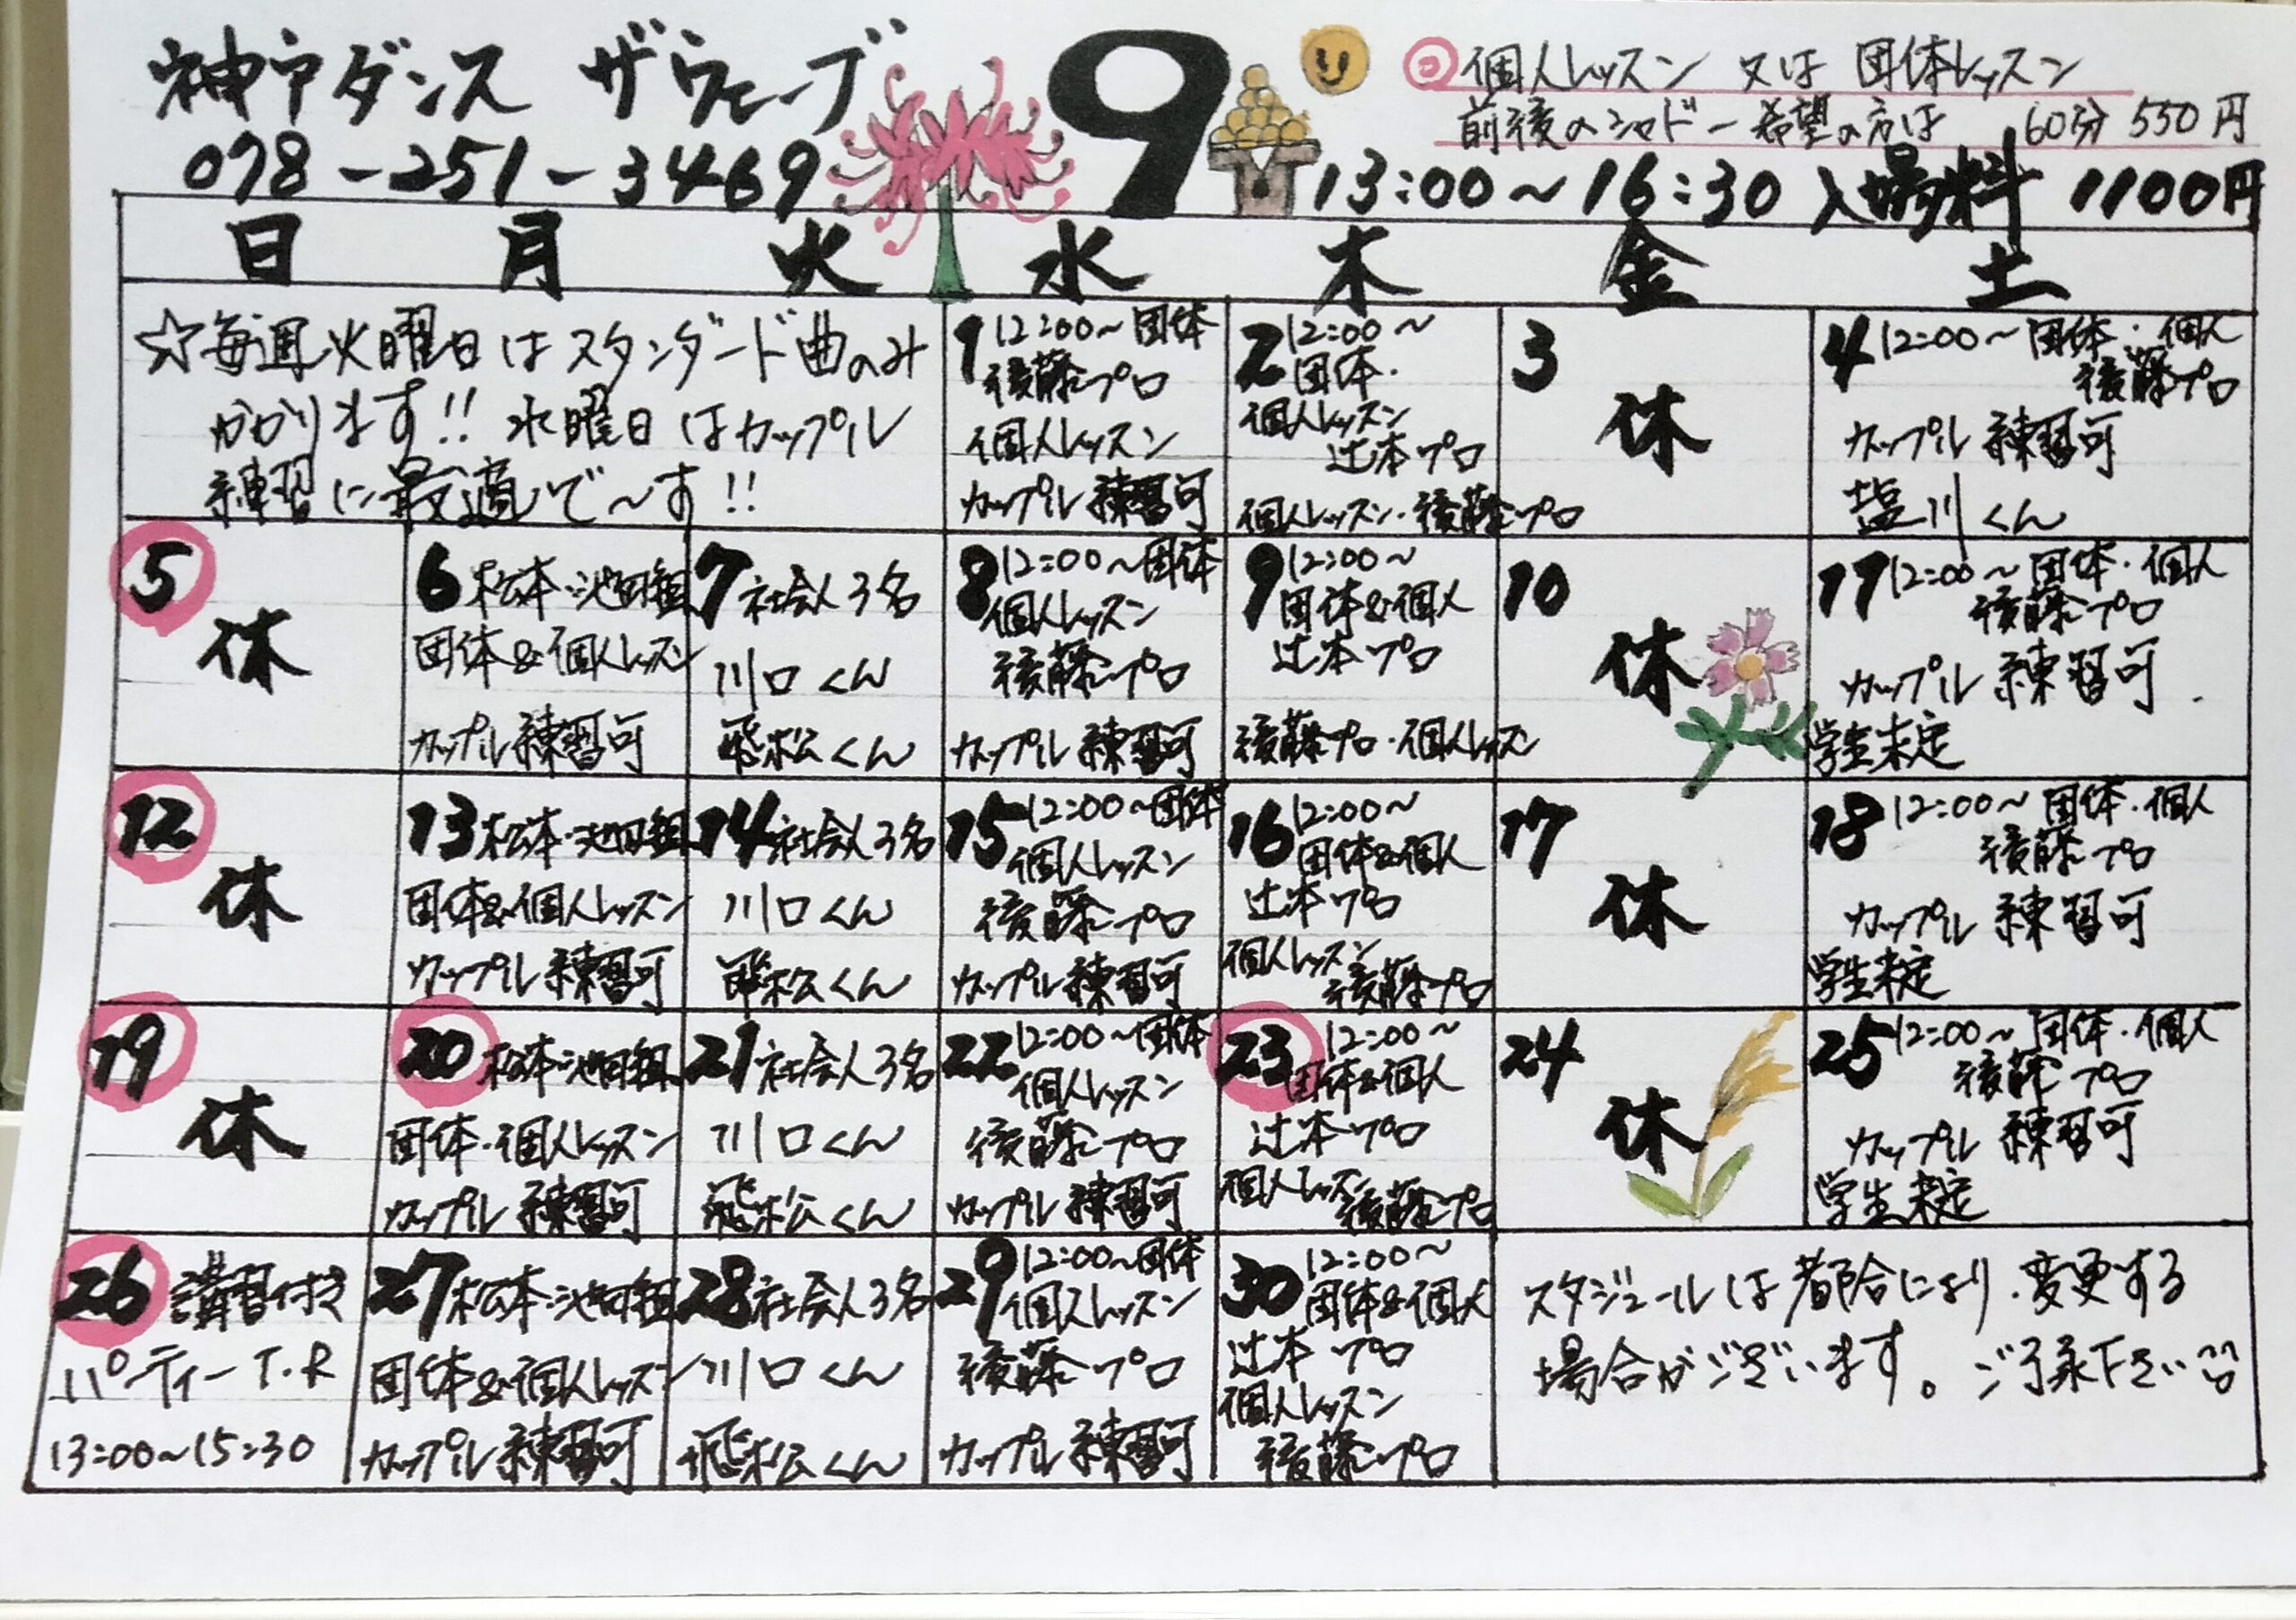 神戸ダンス ザウェーブ
078-251-3469
9
個人レッスン 又は 団体レッスン
前後のシャドー希望の方は 60分 550円
13:00~16:30 入場料 1100円
日 月 火 水 木 金 土
☆毎週火曜日はスタンダード曲のみ
かかります!! 水曜日はカップル
練習に最適で~す!!
1 12:00~団体
後藤プロ
個人レッスン
カップル練習可
2 12:00~
団体・
個人レッスン
辻本プロ
個人レッスン・後藤プロ
3
休
4 12:00~団体・個人
後藤プロ
カップル練習可
塩川くん
5
休
6 松本・池田組
団体&個人レッスン
カップル練習可
7 社会人3名
川口くん
飛松くん
8 12:00~団体
個人レッスン
後藤プロ
カップル練習可
9 12:00~
団体&個人
辻本プロ
後藤プロ・個人レッスン
10
休
11 12:00~団体・個人
後藤プロ
カップル練習可
学生未定
12
休
13 松本・池田組
団体&個人レッスン
カップル練習可
14 社会人3名
川口くん
飛松くん
15 12:00~団体
個人レッスン
後藤プロ
カップル練習可
16 12:00~
団体&個人
辻本プロ
個人レッスン
後藤プロ
17
休
18 12:00~団体・個人
後藤プロ
カップル練習可
学生未定
19
休
20 松本・池田組
団体・個人レッスン
カップル練習可
21 社会人3名
川口くん
飛松くん
22 12:00~団体
個人レッスン
後藤プロ
カップル練習可
23 12:00~
団体&個人
辻本プロ
個人レッスン
後藤プロ
24
休
25 12:00~団体・個人
後藤プロ
カップル練習可
学生未定
26 講習付き
パーティーT.R
13:00~15:30
27 松本・池田組
団体&個人レッスン
カップル練習可
28 社会人3名
川口くん
飛松くん
29 12:00~団体
個人レッスン
後藤プロ
カップル練習可
30 12:00~
団体&個人
辻本プロ
個人レッスン
後藤プロ
スケジュールは都合により、変更する
場合がございます。ご了承下さい